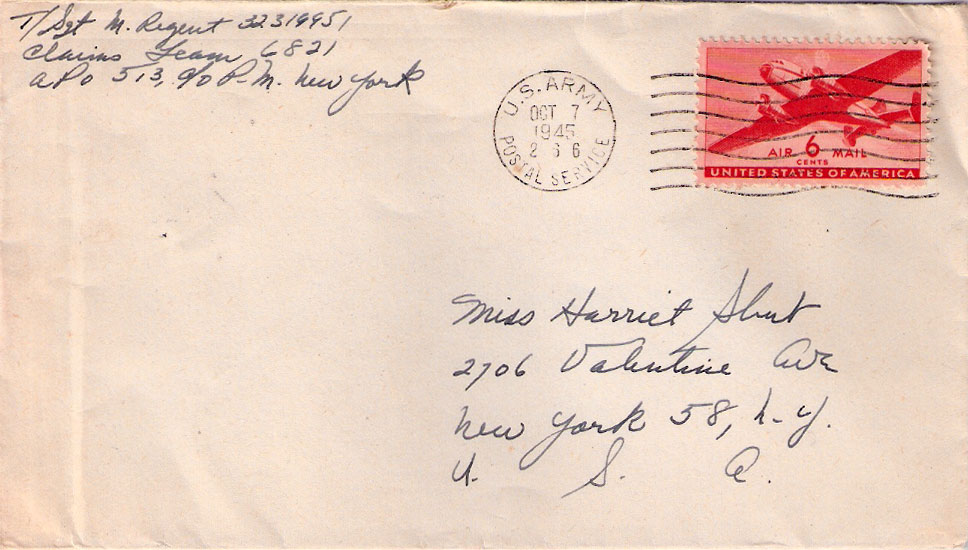 T/Sgt M. Regent 32319951
Claims Team 6821
APO 513, %o P.M. New York
U.S. ARMY
OCT 7
1945
2 6 6
POSTAL SERVICE
AIR 6 MAIL
CENTS
UNITED STATES OF AMERICA
Miss Harriet
2706 Valentine Ave
New York 58, N.Y.
U. S. A.